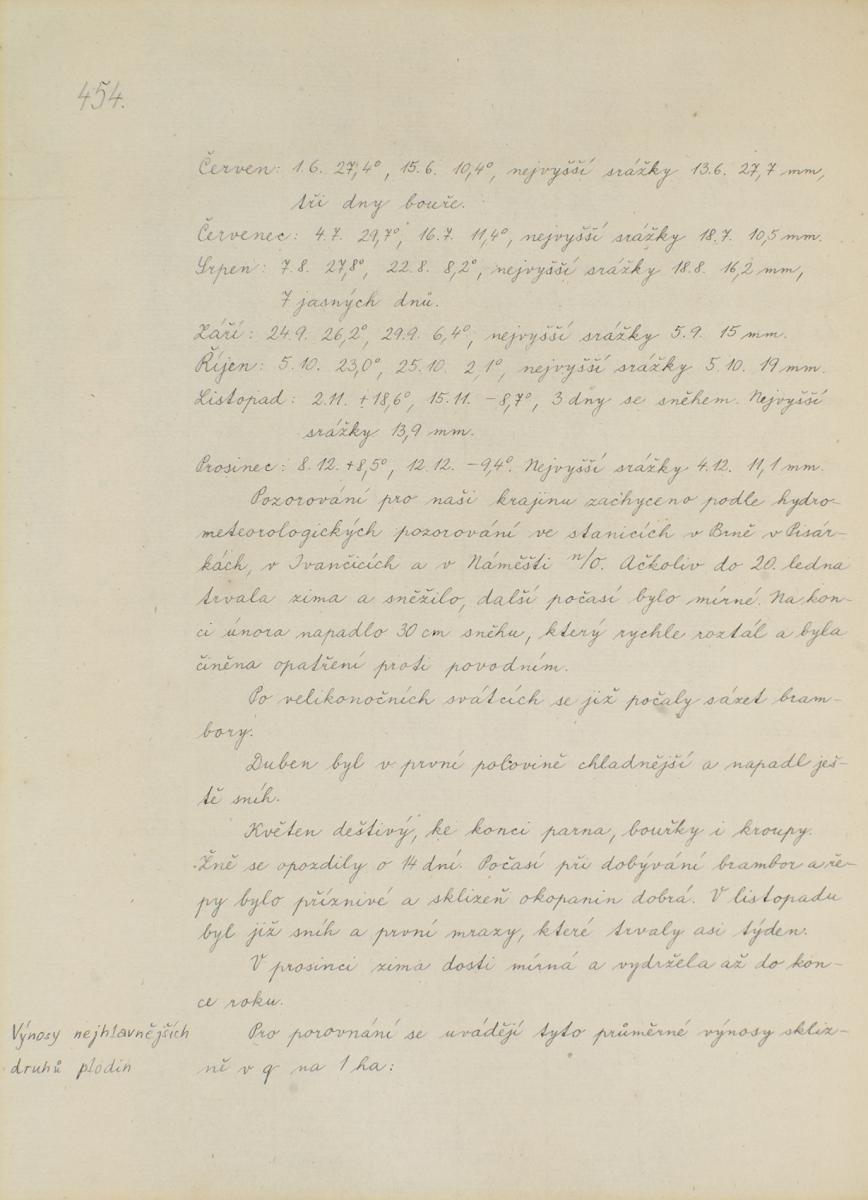 454.
Červen: 1.6. 27,4°, 15.6. 10,4°, nejvyšší srážky 13.6. 27,7 mm,
tři dny bouře.
Červenec: 4.7. 29,7°, 16.7. 11,4°, nejvyšší srážky 18.7. 10,5 mm.
Srpen: 7.8. 27,8°, 22.8. 8,2°, nejvyšší srážky 18.8. 16,2 mm,
7 jasných dnů.
Září: 24.9. 26,2°, 29.9. 6,4°, nejvyšší srážky 5.9. 15 mm.
Říjen: 5.10. 23,0°, 25.10. 2,1°, nejvyšší srážky 5.10. 19 mm.
Listopad: 2.11. +18,6°, 15.11. -8,7°, 3 dny se sněhem. Nejvyšší
srážky 13,9 mm.
Prosinec: 8.12. +8,5°, 12.12. -9,4°. Nejvyšší srážky 4.12. 11,1 mm.
Pozorování pro naši krajinu zachyceno podle hydro-
meteorologických pozorování ve stanicích v Brně v Pisár-
kách, v Ivančicích a v Náměšti n/O. Ačkoliv do 20. ledna
trvala zima a sněžilo, další počasí bylo mírné. Na kon-
ci února napadlo 30 cm sněhu, který rychle roztál a byla
činěna opatření proti povodním.
Po velikonočních svátcích se již počaly sázet bram-
bory.
Duben byl v první polovině chladnější a napadl ješ-
tě sníh.
Květen deštivý, ke konci parna, bouřky i kroupy.
Žně se opozdily o 14 dní. Počasí při dobývání brambor a ře-
py bylo příznivé a sklizeň okopanin dobrá. V listopadu
byl již sníh a první mrazy, které trvaly asi týden.
V prosinci zima dosti mírná a vydržela až do kon-
ce roku.
Výnosy nejhlavnějších
druhů plodin
Pro porovnání se uvádějí tyto průměrné výnosy skliz-
ně v q na 1 ha: